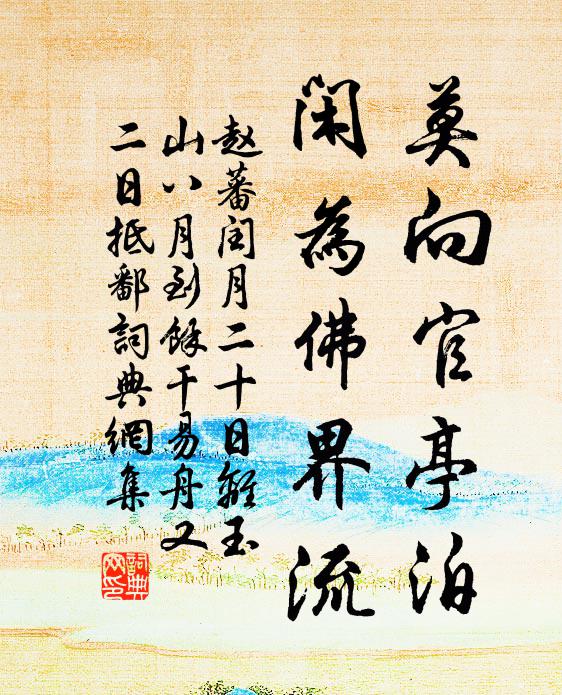 莫向官亭泊
閑為佛界流
趙蕃閏月二十日離玉
山八月到餘干易舟又
二日抵鄱詞典網集
詞典
网印